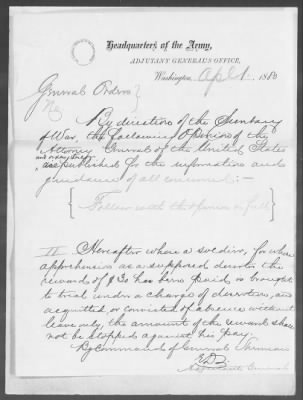 Headquarters of the Army,
ADJUTANT GENERAL'S OFFICE,
Washington, April 1880
General Orders }
No. }
By direction of the Secretary
of War, the following Opinion of the
Attorney General of the United States
and orders
published for the information and
guidance of all concerned:-
{ Follow with the opinion in full }
II. Hereafter when a soldier, for whose
apprehension as a supposed deserter the
reward of $30 has been paid, is brought
to trial under a charge of desertion, and
acquitted, or convicted of absence without
leave only, the amount of the reward shall
not be stopped against his pay.
By Command of General Sherman
Adjutant General